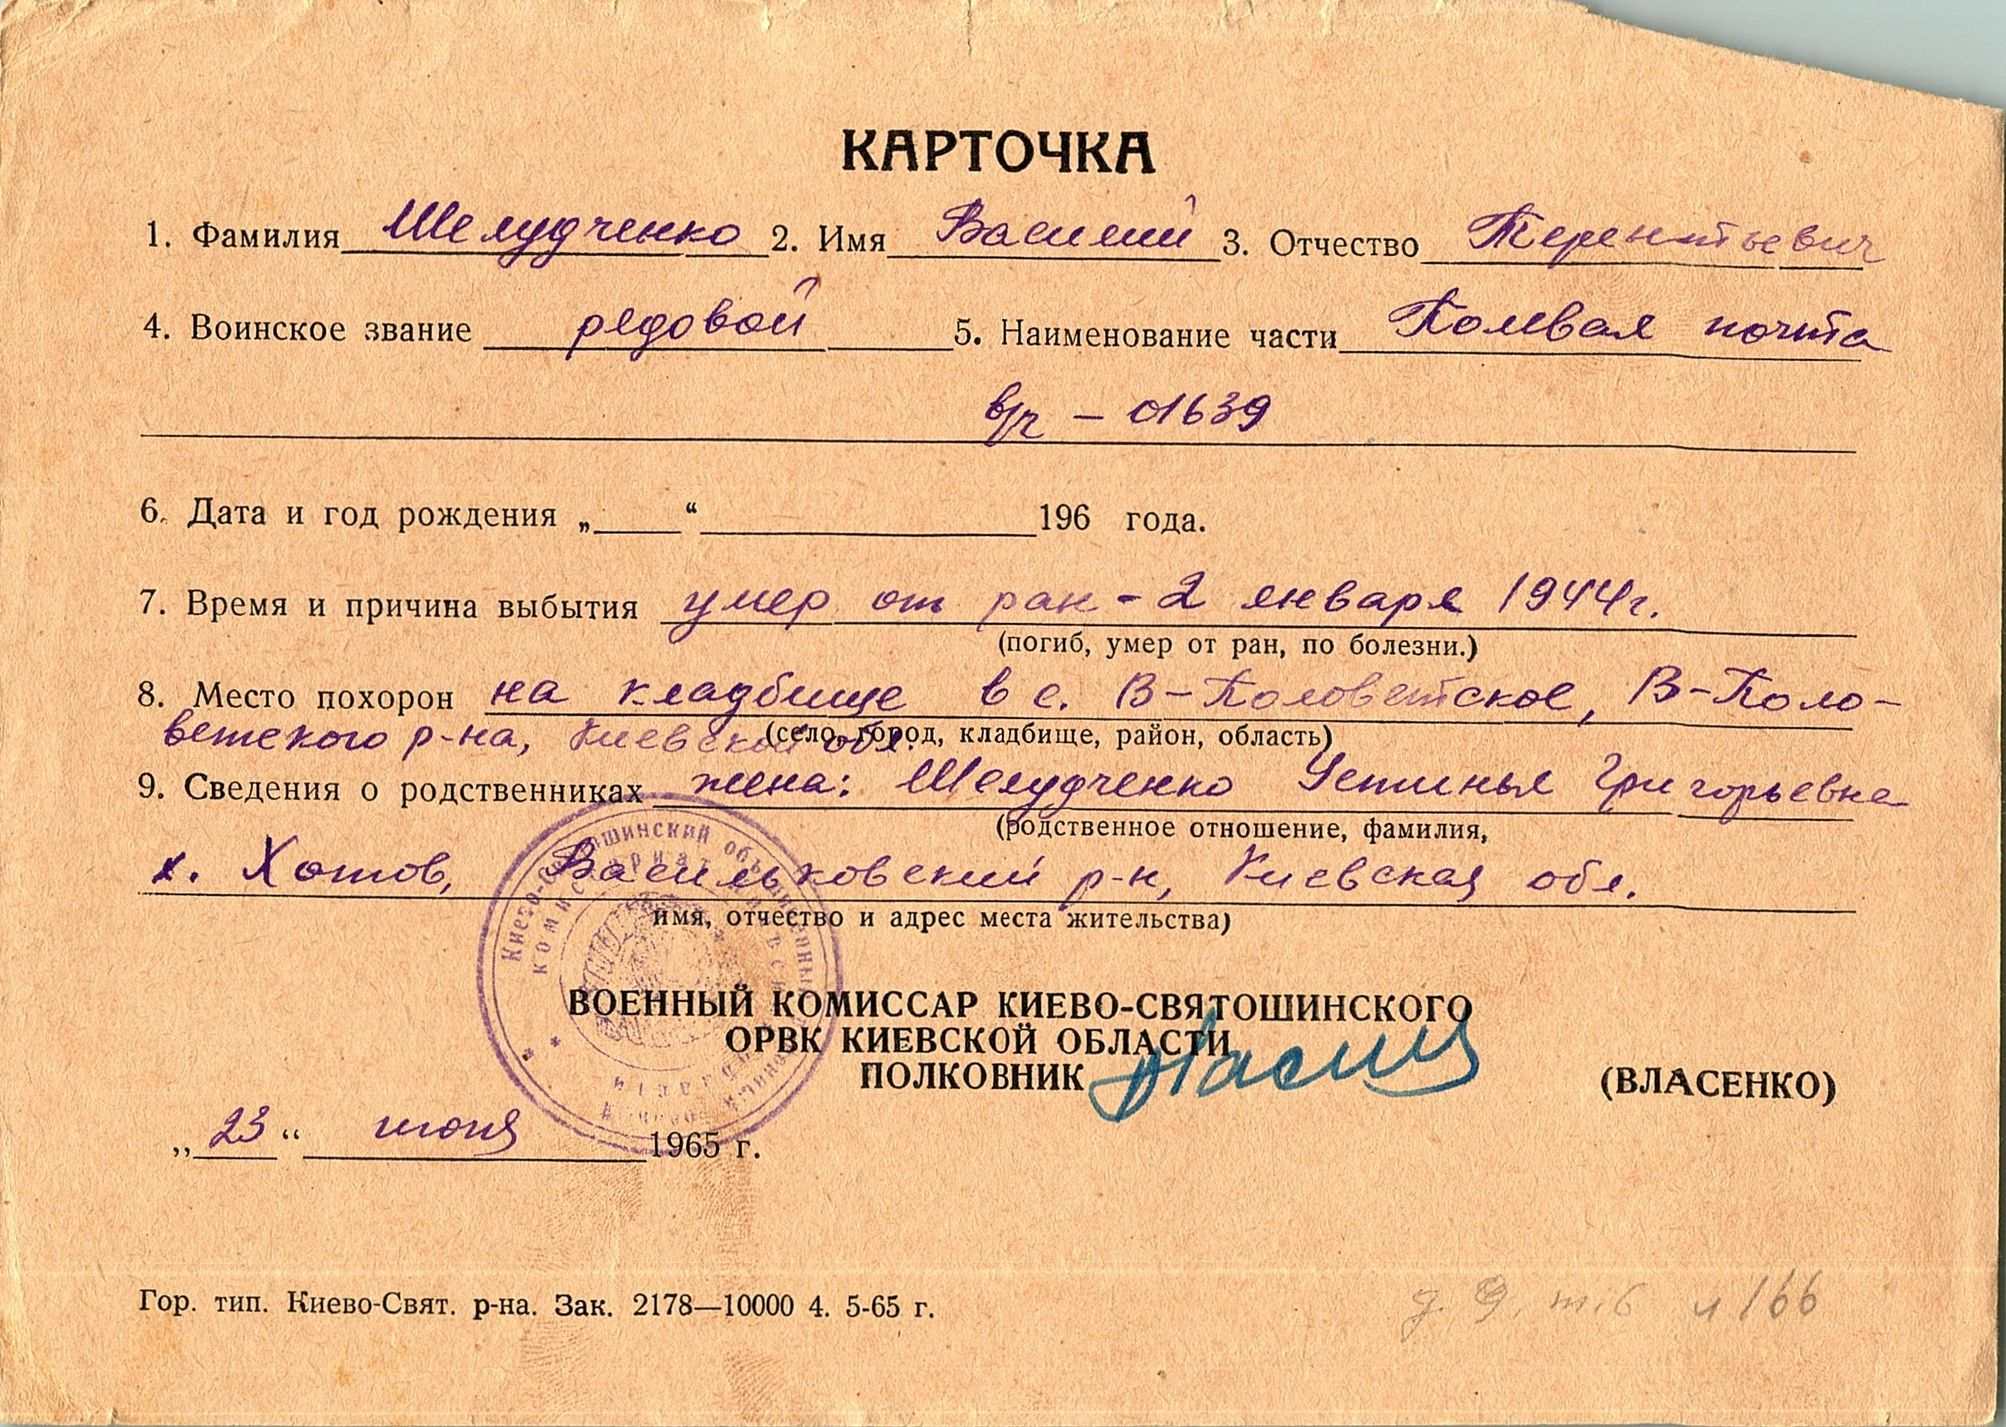 КАРТОЧКА
1. Фамилия Шелудченко 2. Имя Василий 3. Отчество Терентьевич
4. Воинское звание рядовой 5. Наименование части Полевая почта
в/ч - 01639
6. Дата и год рождения „ “ 196 года.
7. Время и причина выбытия умер от ран - 2 января 1944г.
(погиб, умер от ран, по болезни.)
8. Место похорон на кладбище в с. В-Половетское, В-Поло-
ветского р-на, Киевской обл.
(село, город, кладбище, район, область)
9. Сведения о родственниках жена: Шелудченко Устинья Григорьевна
(родственное отношение, фамилия,
х. Хотов, Васильковский р-н, Киевская обл.
имя, отчество и адрес места жительства)
ВОЕННЫЙ КОМИССАР КИЕВО-СВЯТОШИНСКОГО
ОРВК КИЕВСКОЙ ОБЛАСТИ
ПОЛКОВНИК (ВЛАСЕНКО)
„ 23 “ июня 1965 г.
Гор. тип. Киево-Свят. р-на. Зак. 2178—10000 4. 5-65 г.
д. 9, т.6 л 166